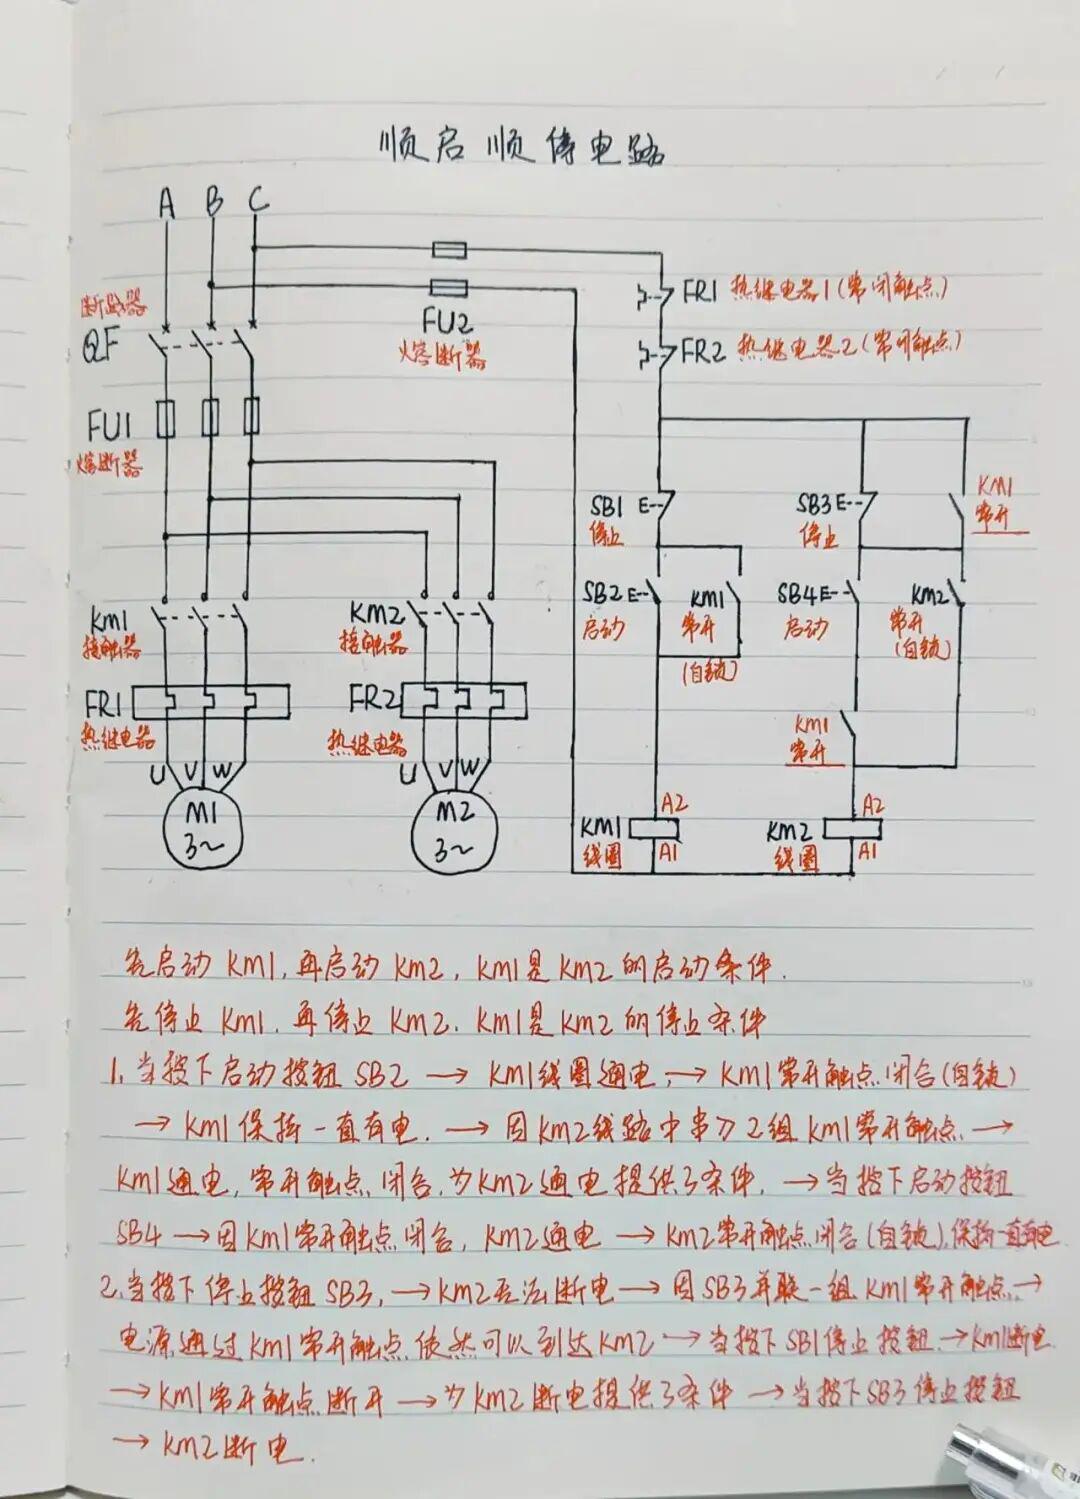 顺启顺停电路
A B C
断路器
QF
FU1
熔断器
FU2
熔断器
FR1 热继电器1(常闭触点)
FR2 热继电器2(常闭触点)
SB1 E
停止
SB3 E
停止
KM1
常开
SB2 E
启动
KM1
常开
(自锁)
SB4 E
启动
KM2
常开
(自锁)
KM1
常开
KM1
接触器
KM2
接触器
FR1
热继电器
FR2
热继电器
U V W
U V W
M1
3~
M2
3~
KM1
线圈
A2
A1
KM2
线圈
A2
A1
先启动KM1,再启动KM2,KM1是KM2的启动条件.
先停止KM1.再停止KM2.KM1是KM2的停止条件
1.当按下启动按钮SB2→KM1线圈通电,→KM1常开触点闭合(自锁)
→KM1保持一直有电.→因KM2线路中串了2组KM1常开触点→
KM1通电,常开触点闭合,为KM2通电提供了条件,→当按下启动按钮
SB4→因KM1常开触点闭合,KM2通电→KM2常开触点闭合(自锁),保持一直有电
2.当按下停止按钮SB3,→KM2无法断电→因SB3并联一组KM1常开触点→
电源通过KM1常开触点依然可以到达KM2→当按下SB1停止按钮→KM1断电
→KM1常开触点断开→为KM2断电提供了条件→当按下SB3停止按钮
→KM2断电.